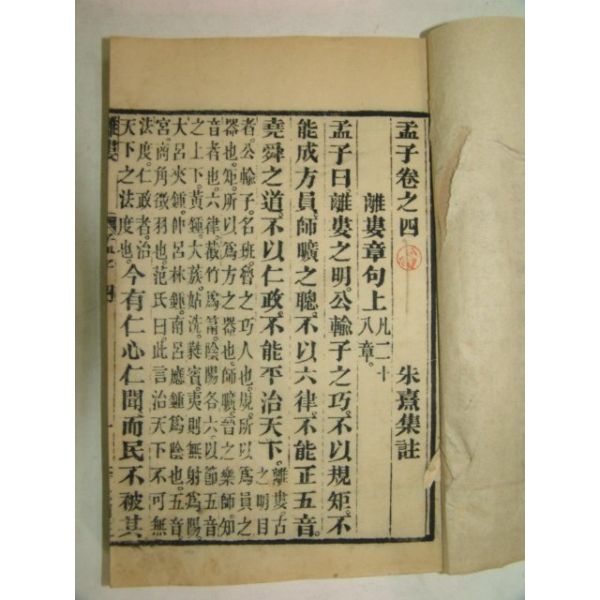 孟子卷之四 朱熹集註
離婁章句上 凡二十八章。
孟子曰。離婁之明。公輸子之巧。不以規矩。不
能成方員。師曠之聰。不以六律。不能正五音。
堯舜之道。不以仁政。不能平治天下。離婁古之明目
者。公輸子。名班。魯之巧人也。規。所以爲員之
器也。矩。所以爲方之器也。師曠。晉之樂師。知
音者也。六律截竹爲筩。陰陽各六。以節五音
之上下。黃鍾大蔟。姑洗。蕤賓。夷則無射爲陽。
大呂夾鍾。仲呂林鍾。南呂應鍾爲陰也。五音
宮。商角徵羽也。范氏曰。此言治天下不可無
法度。仁政者。治
天下之法度也。今有仁心仁聞而民不被其